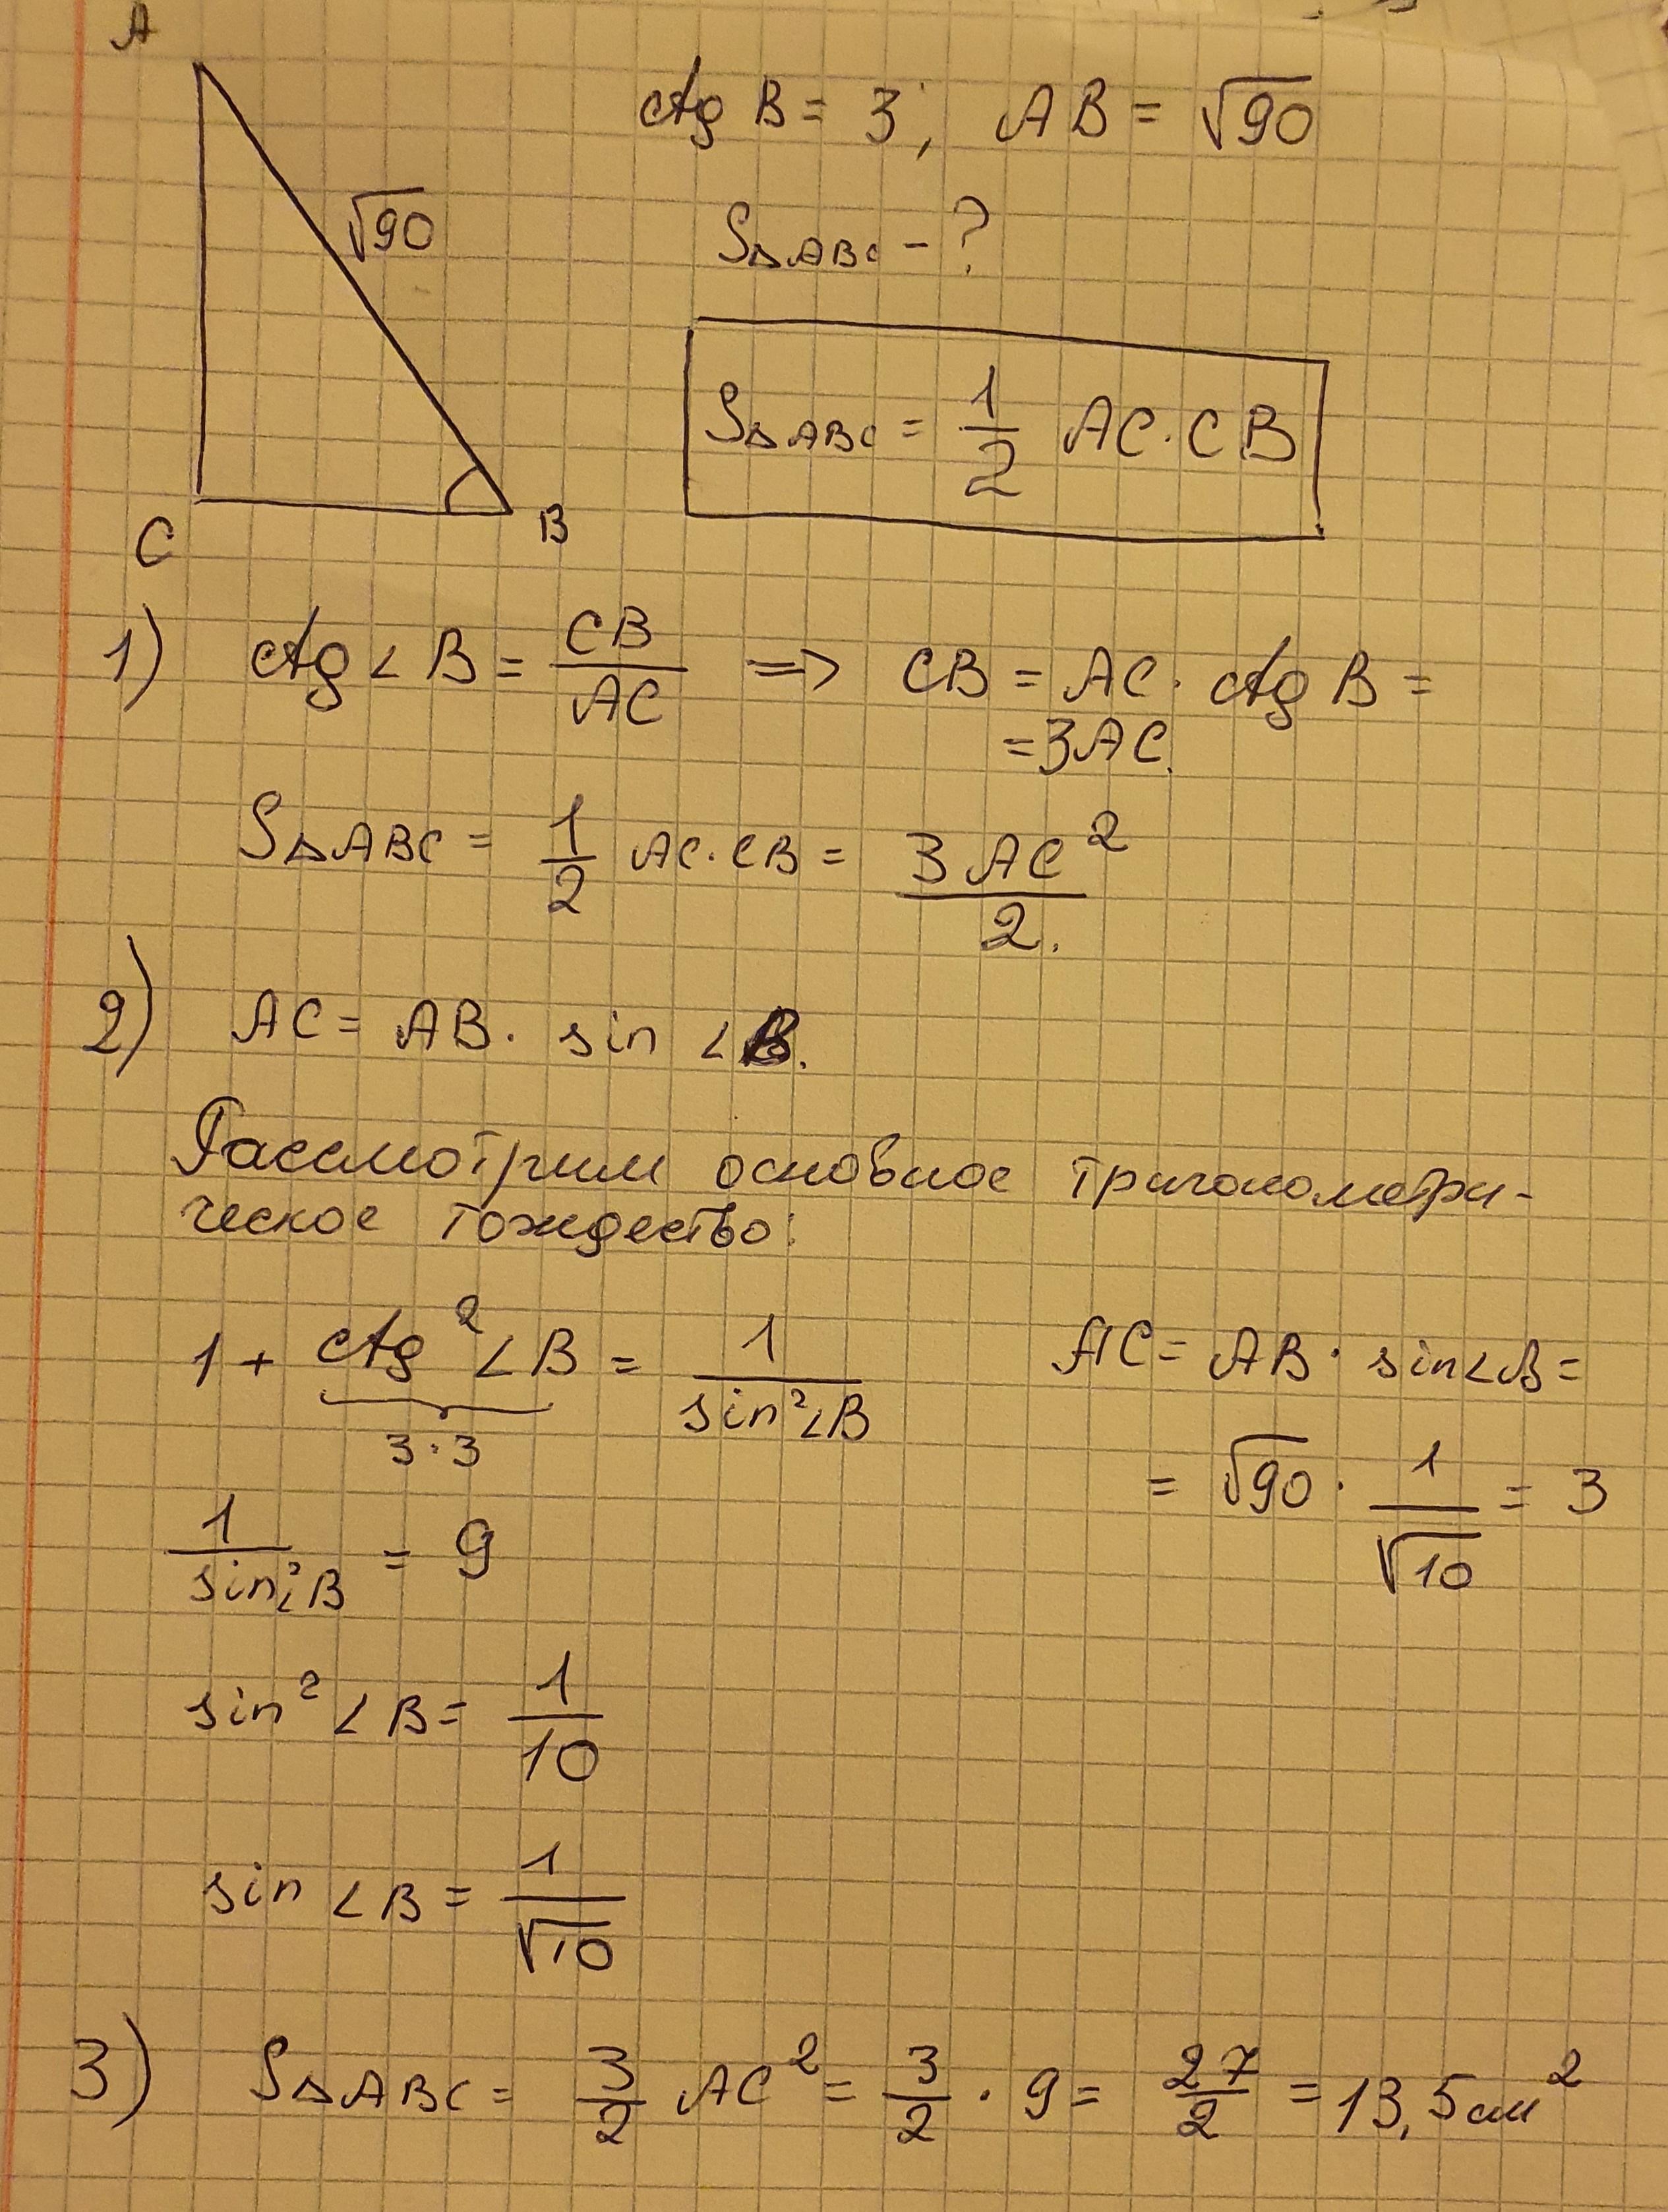 A
√90
C
B
ctg B = 3; AB = √90
S△ABC - ?
S△ABC = 1/2 AC·CB
1) ctg∠B = CB/AC => CB = AC · ctg B =
= 3AC.
S△ABC = 1/2 AC·CB = 3AC²/2.
2) AC = AB · sin ∠B.
Рассмотрим основное тригонометри-
ческое тождество:
1 + ctg²∠B = 1/sin²∠B
3·3
1/sin²∠B = 9
sin²∠B = 1/10
sin ∠B = 1/√10
AC = AB · sin∠B =
= √90 · 1/√10 = 3
3) S△ABC = 3/2 AC² = 3/2 · 9 = 27/2 = 13,5см²